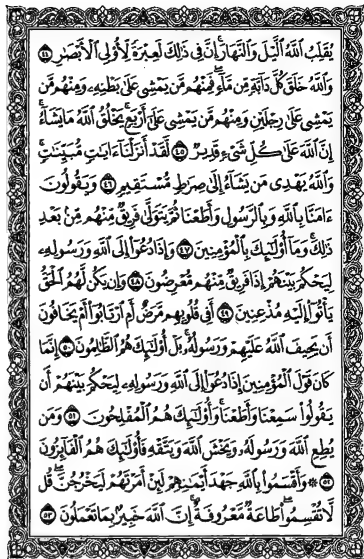 يُقَلِّبُ ٱللَّهُ ٱلَّيْلَ وَٱلنَّهَارَ إِنَّ فِى ذَٰلِكَ لَعِبْرَةً لِّأُو۟لِى ٱلْأَبْصَٰرِ ٤٤
وَٱللَّهُ خَلَقَ كُلَّ دَآبَّةٍ مِّن مَّآءٍ فَمِنْهُم مَّن يَمْشِى عَلَىٰ بَطْنِهِۦ وَمِنْهُم مَّن
يَمْشِى عَلَىٰ رِجْلَيْنِ وَمِنْهُم مَّن يَمْشِى عَلَىٰٓ أَرْبَعٍ يَخْلُقُ ٱللَّهُ مَا يَشَآءُ
إِنَّ ٱللَّهَ عَلَىٰ كُلِّ شَىْءٍ قَدِيرٌ ٤٥ لَّقَدْ أَنزَلْنَآ ءَايَٰتٍ مُّبَيِّنَٰتٍ
وَٱللَّهُ يَهْدِى مَن يَشَآءُ إِلَىٰ صِرَٰطٍ مُّسْتَقِيمٍ ٤٦ وَيَقُولُونَ
ءَامَنَّا بِٱللَّهِ وَبِٱلرَّسُولِ وَأَطَعْنَا ثُمَّ يَتَوَلَّىٰ فَرِيقٌ مِّنْهُم مِّنۢ بَعْدِ
ذَٰلِكَ وَمَآ أُو۟لَٰٓئِكَ بِٱلْمُؤْمِنِينَ ٤٧ وَإِذَا دُعُوٓا۟ إِلَى ٱللَّهِ وَرَسُولِهِۦ
لِيَحْكُمَ بَيْنَهُمْ إِذَا فَرِيقٌ مِّنْهُم مُّعْرِضُونَ ٤٨ وَإِن يَكُن لَّهُمُ ٱلْحَقُّ
يَأْتُوٓا۟ إِلَيْهِ مُذْعِنِينَ ٤٩ أَفِى قُلُوبِهِم مَّرَضٌ أَمِ ٱرْتَابُوٓا۟ أَمْ يَخَافُونَ
أَن يَحِيفَ ٱللَّهُ عَلَيْهِمْ وَرَسُولُهُۥ بَلْ أُو۟لَٰٓئِكَ هُمُ ٱلظَّٰلِمُونَ ٥٠ إِنَّمَا
كَانَ قَوْلَ ٱلْمُؤْمِنِينَ إِذَا دُعُوٓا۟ إِلَى ٱللَّهِ وَرَسُولِهِۦ لِيَحْكُمَ بَيْنَهُمْ أَن
يَقُولُوا۟ سَمِعْنَا وَأَطَعْنَا وَأُو۟لَٰٓئِكَ هُمُ ٱلْمُفْلِحُونَ ٥١ وَمَن
يُطِعِ ٱللَّهَ وَرَسُولَهُۥ وَيَخْشَ ٱللَّهَ وَيَتَّقْهِ فَأُو۟لَٰٓئِكَ هُمُ ٱلْفَآئِزُونَ
٥٢ ۞ وَأَقْسَمُوا۟ بِٱللَّهِ جَهْدَ أَيْمَٰنِهِمْ لَئِنْ أَمَرْتَهُمْ لَيَخْرُجُنَّ قُل
لَّا تُقْسِمُوا۟ طَاعَةٌ مَّعْرُوفَةٌ إِنَّ ٱللَّهَ خَبِيرٌۢ بِمَا تَعْمَلُونَ ٥٣